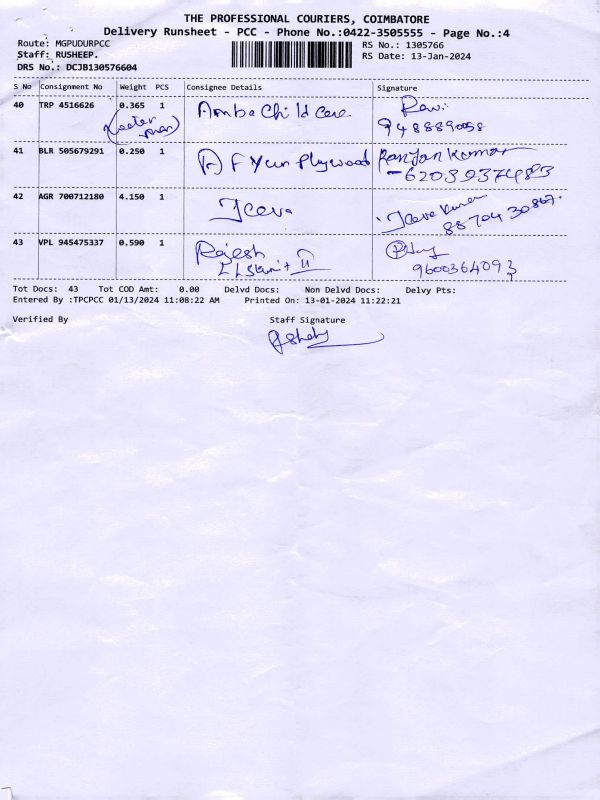 THE PROFESSIONAL COURIERS, COIMBATORE
Delivery Runsheet - PCC - Phone No.:0422-3505555 - Page No.:4
Route: MGPUDURPCC
Staff: RUSHEEP.
DRS No.: DCJB130576604
RS No.: 1305766
RS Date: 13-Jan-2024
S No Consignment No Weight PCS Consignee Details Signature
40 TRP 4516626 0.365 1 Amba Child Care Ravi
9488890058
41 BLR 505679291 0.250 1 Plywood Ranjan Kumar
-6203937483
42 AGR 700712180 4.150 1 Jeeva Jeeva Kumar
8870430867.
43 VPL 945475337 0.590 1 Rajesh
9600364093
Tot Docs: 43 Tot COD Amt: 0.00 Delvd Docs: Non Delvd Docs: Delvy Pts:
Entered By :TPCPCC 01/13/2024 11:08:22 AM Printed On: 13-01-2024 11:22:21
Verified By Staff Signature